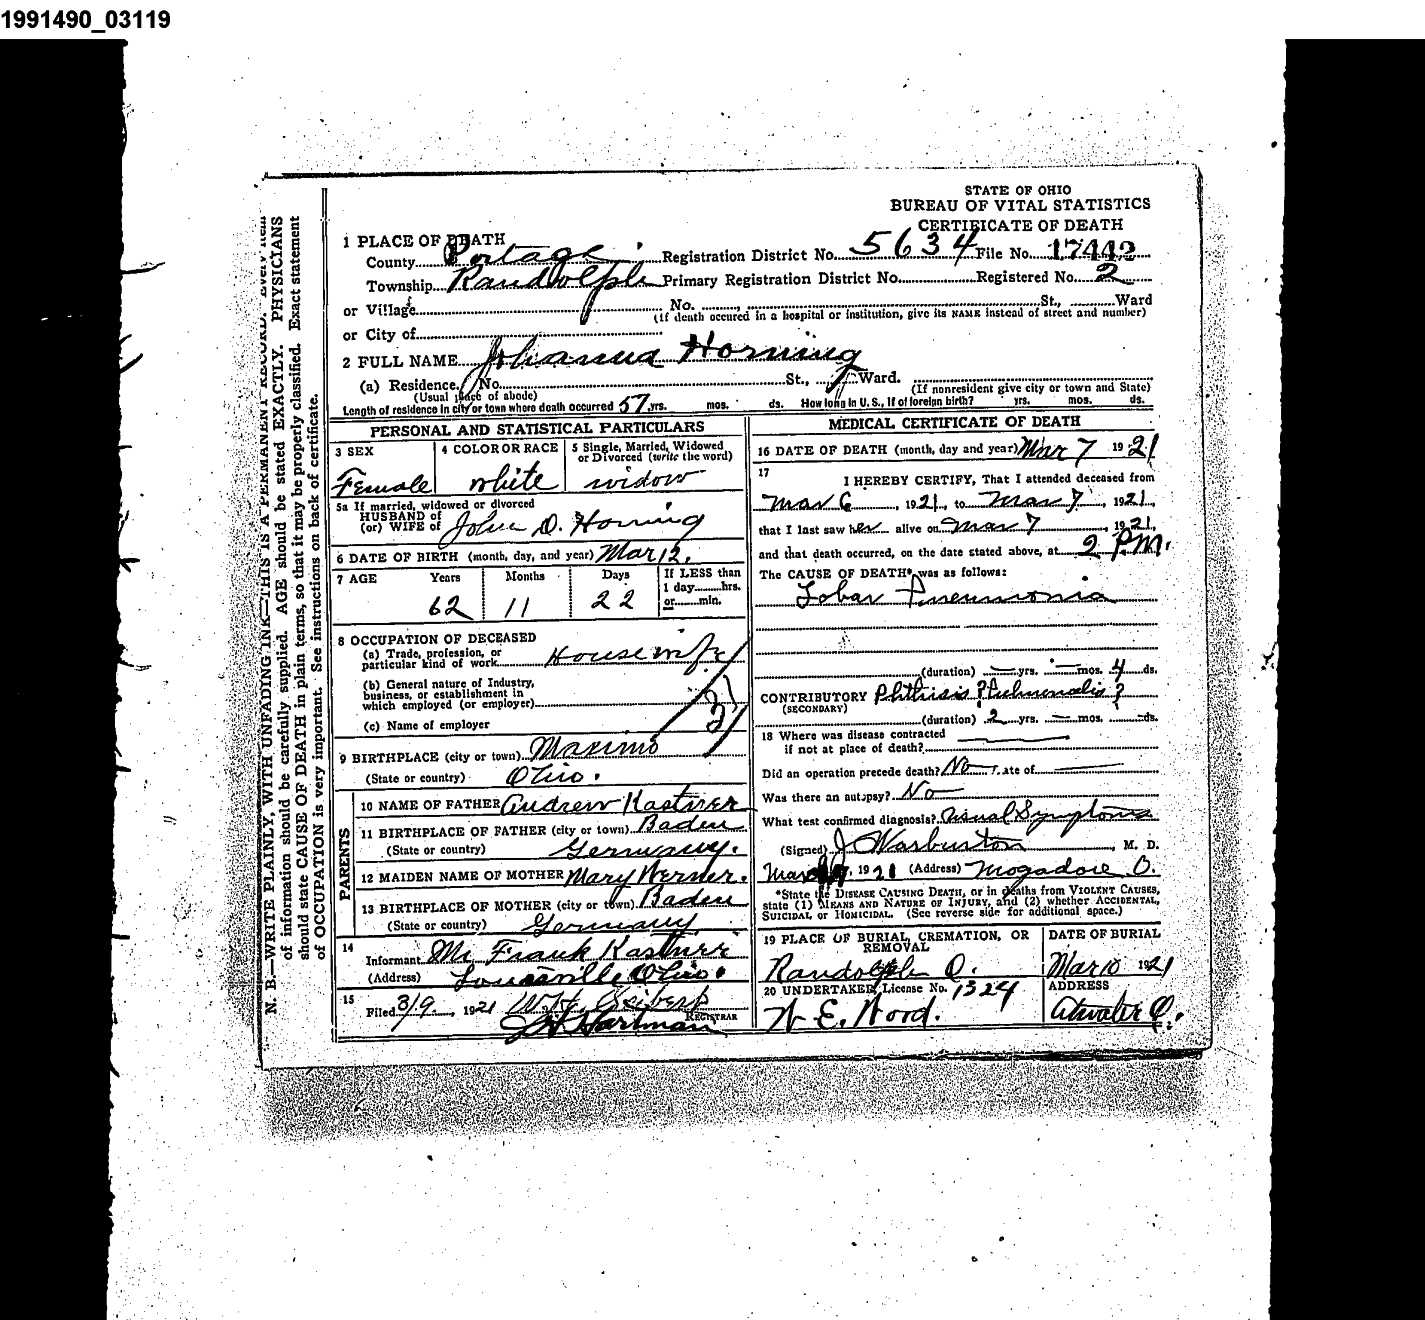 1991490_03119
STATE OF OHIO
BUREAU OF VITAL STATISTICS
CERTIFICATE OF DEATH
1 PLACE OF DEATH
County Portage Registration District No. 5634 File No. 17442
Township Randolph Primary Registration District No. Registered No. 2
or Village No. St., Ward
(If death occured in a hospital or institution, give its NAME instead of street and number)
or City of
2 FULL NAME Johanna Horning
(a) Residence. No. St., Ward.
(Usual place of abode) (If nonresident give city or town and State)
Length of residence in city or town where death occurred 57 yrs. mos. ds. How long in U. S., if of foreign birth? yrs. mos. ds.
PERSONAL AND STATISTICAL PARTICULARS
3 SEX 4 COLOR OR RACE 5 Single, Married, Widowed
or Divorced (write the word)
Female white widow
5a If married, widowed or divorced
HUSBAND of
(or) WIFE of John D. Horning
6 DATE OF BIRTH (month, day, and year) Mar 12.
7 AGE Years Months Days If LESS than
1 day hrs.
or min.
62 11 22
8 OCCUPATION OF DECEASED
(a) Trade, profession, or
particular kind of work Housewife
(b) General nature of Industry,
business, or establishment in
which employed (or employer)
(c) Name of employer
9 BIRTHPLACE (city or town) Maximo
(State or country) Ohio.
PARENTS
10 NAME OF FATHER Andrew Kastner
11 BIRTHPLACE OF FATHER (city or town) Baden
(State or country) Germany.
12 MAIDEN NAME OF MOTHER Mary Werner.
13 BIRTHPLACE OF MOTHER (city or town) Baden
(State or country) Germany
14
Informant Mr Frank Kastner
(Address) Louisville Ohio.
15
Filed 3/9, 1921 Seibert
Hartman REGISTRAR
MEDICAL CERTIFICATE OF DEATH
16 DATE OF DEATH (month, day and year) Mar 7 1921
17
I HEREBY CERTIFY, That I attended deceased from
Mar 6, 1921, to Mar 7, 1921,
that I last saw her alive on Mar 7, 1921,
and that death occurred, on the date stated above, at 2 P.M.
The CAUSE OF DEATH* was as follows:
Lobar Pneumonia
(duration) yrs. mos. 4 ds.
CONTRIBUTORY Phthisis ? Pulmonalis ?
(SECONDARY)
(duration) 2 yrs. — mos. — ds.
18 Where was disease contracted
if not at place of death?
Did an operation precede death? No Date of
Was there an autopsy? No
What test confirmed diagnosis? Usual Symptoms
(Signed) J Warburton, M. D.
Mar 1921 (Address) Mogadore O.
*State the DISEASE CAUSING DEATH, or in deaths from VIOLENT CAUSES,
state (1) MEANS AND NATURE OF INJURY, and (2) whether ACCIDENTAL,
SUICIDAL or HOMICIDAL. (See reverse side for additional space.)
19 PLACE OF BURIAL, CREMATION, OR
REMOVAL
DATE OF BURIAL
Randolph O. Mar 10 1921
20 UNDERTAKER, License No. 1324 ADDRESS
W E. Wood. Atwater O.
N. B.—WRITE PLAINLY, WITH UNFADING INK—THIS IS A PERMANENT RECORD. Every item
of information should be carefully supplied. AGE should be stated EXACTLY. PHYSICIANS
should state CAUSE OF DEATH in plain terms, so that it may be properly classified. Exact statement
of OCCUPATION is very important. See instructions on back of certificate.